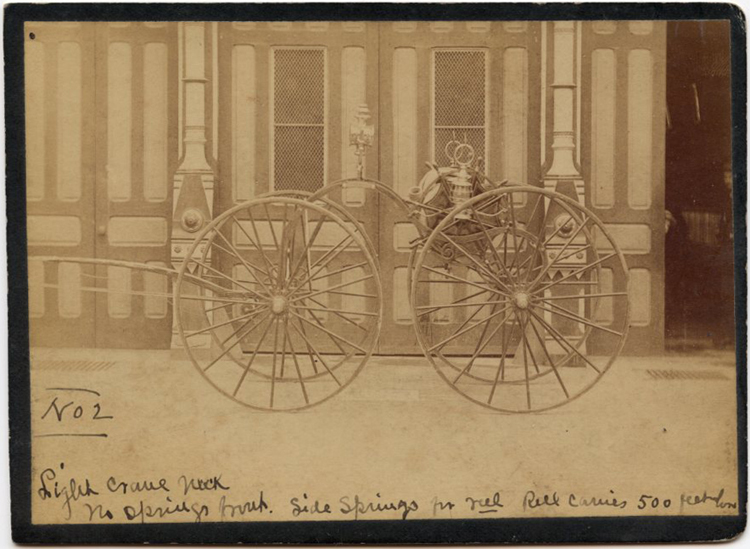 No 2
Light Crane Neck
No springs front. Side Springs for reel Reel Carries 500 feet hose